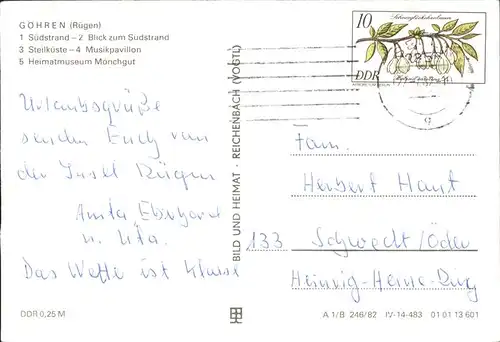 GÖHREN (Rügen)
1 Südstrand – 2 Blick zum Südstrand
3 Steilküste – 4 Musikpavillon
5 Heimatmuseum Mönchgut
Urlaubsgrüße
senden Euch von
der Insel Rügen
Anita Eberhard
u. Uta.
Das Wetter ist Klasse
DDR 0,25 M
BILD UND HEIMAT · REICHENBACH (VOGTL)
10
DDR
Fam.
Herbert Hant
133 Schwedt/Oder
Heinrich-Heine-Ring
A 1/B 246/82 IV-14-483 01 01 13 601